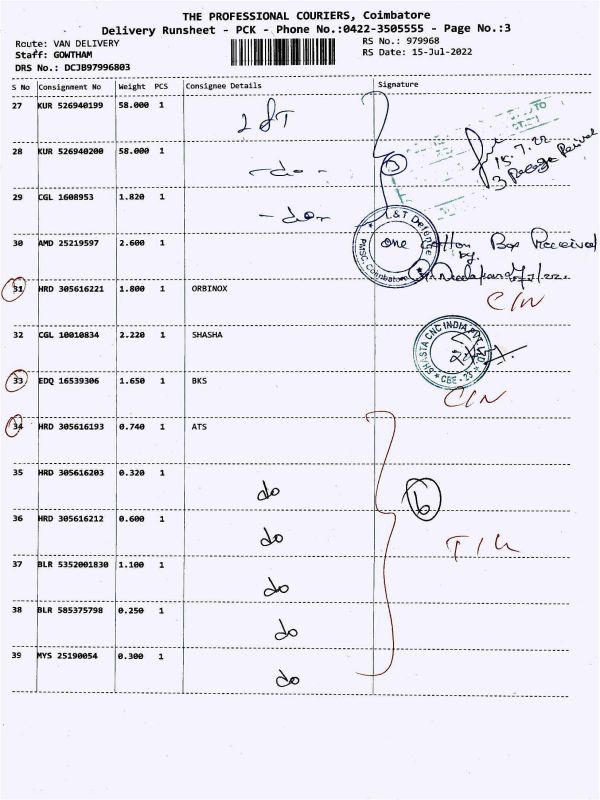 THE PROFESSIONAL COURIERS, Coimbatore
Delivery Runsheet - PCK - Phone No.:0422-3505555 - Page No.:3
Route: VAN DELIVERY
RS No.: 979968
Staff: GOWTHAM
RS Date: 15-Jul-2022
DRS No.: DCJB97996803
S No Consignment No Weight PCS Consignee Details Signature
27 KUR 526940199 58.000 1 L&T
28 KUR 526940200 58.000 1 -do-
15.7.22
29 CGL 1608953 1.820 1 -do-
L&T Defence
PMSC, Coimbatore
30 AMD 25219597 2.600 1
one Box Received
by.
31 HRD 305616221 1.800 1 ORBINOX
C/N
32 CGL 10010834 2.220 1 SHASHA
SHASTA CNC INDIA PVT LTD
* CBE - 25 *
33 EDQ 16539306 1.650 1 BKS
C/N
34 HRD 305616193 0.740 1 ATS
35 HRD 305616203 0.320 1 do
6
36 HRD 305616212 0.600 1 do
37 BLR 5352001830 1.100 1 do
38 BLR 585375798 0.250 1 do
39 MYS 25190054 0.300 1 do